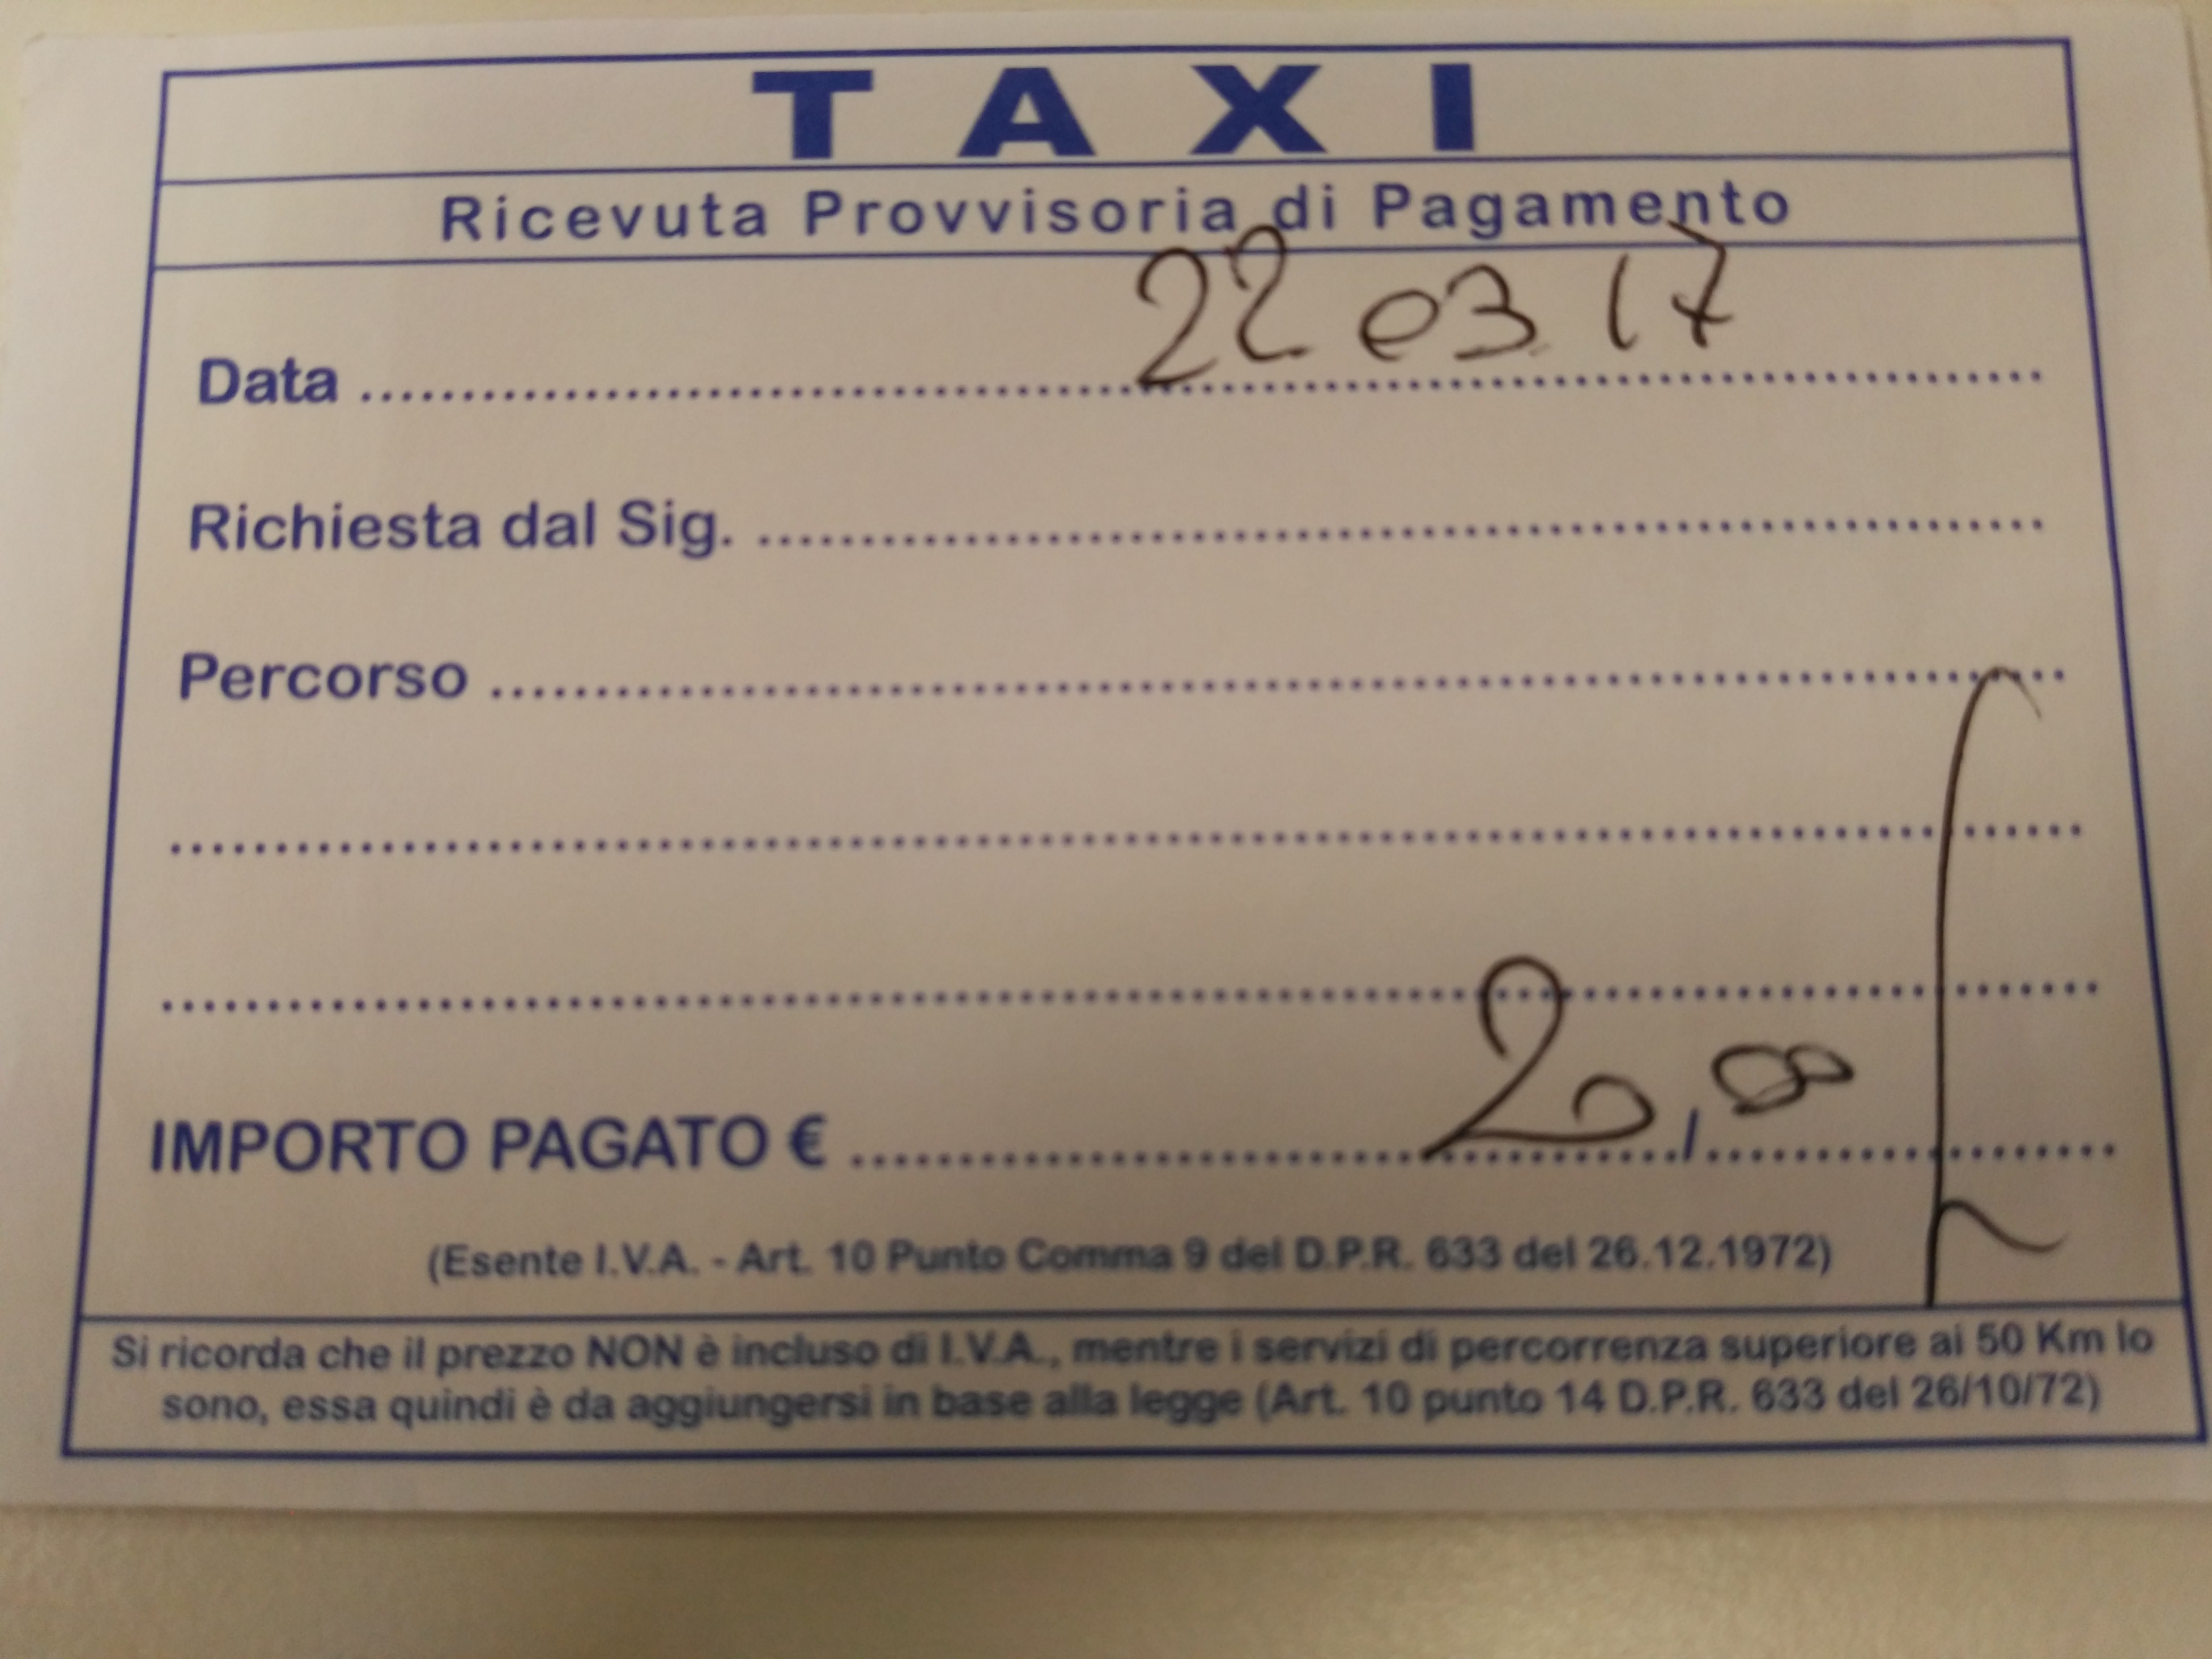 TAXI
Ricevuta Provvisoria di Pagamento
Data ........ 22 03 17
Richiesta dal Sig. ........
Percorso ........
........
........
IMPORTO PAGATO € ........ 20,00
(Esente I.V.A. - Art. 10 Punto Comma 9 del D.P.R. 633 del 26.12.1972)
Si ricorda che il prezzo NON è incluso di I.V.A., mentre i servizi di percorrenza superiore ai 50 Km lo
sono, essa quindi è da aggiungersi in base alla legge (Art. 10 punto 14 D.P.R. 633 del 26/10/72)